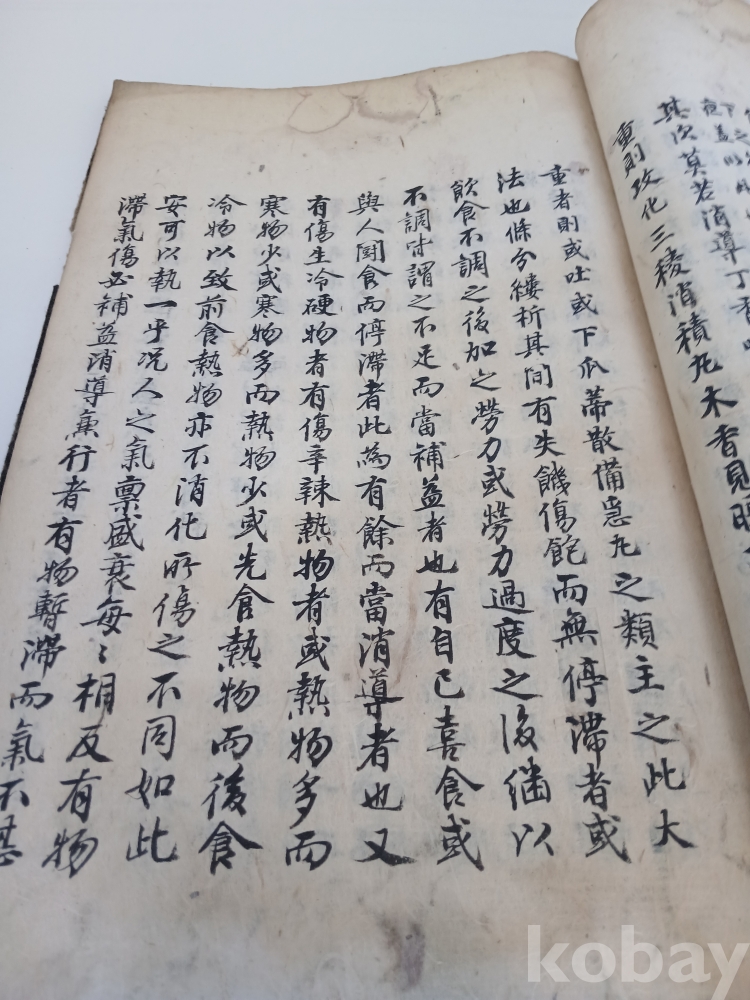 其次莫若消導丁香
重則攻化三稜消積丸木香見晛
重者則或吐或下瓜蔕散備急丸之類主之此大
法也條分縷析其間有失饑傷飽而無停滯者或
飲食不調之後加之勞力或勞力過度之後繼以
不調皆謂之不足而當補益者也有自己喜食或
與人鬪食而停滯者此為有餘而當消導者也又
有傷生冷硬物者有傷辛辣熱物者或熱物多而
寒物少或寒物多而熱物少或先食熱物而後食
冷物以致前食熱物亦不消化所傷之不同如此
安可以執一乎况人之氣禀盛衰每〻相反有物
滯氣傷必補益消導兼行者有物暫滯而氣不甚
kobay